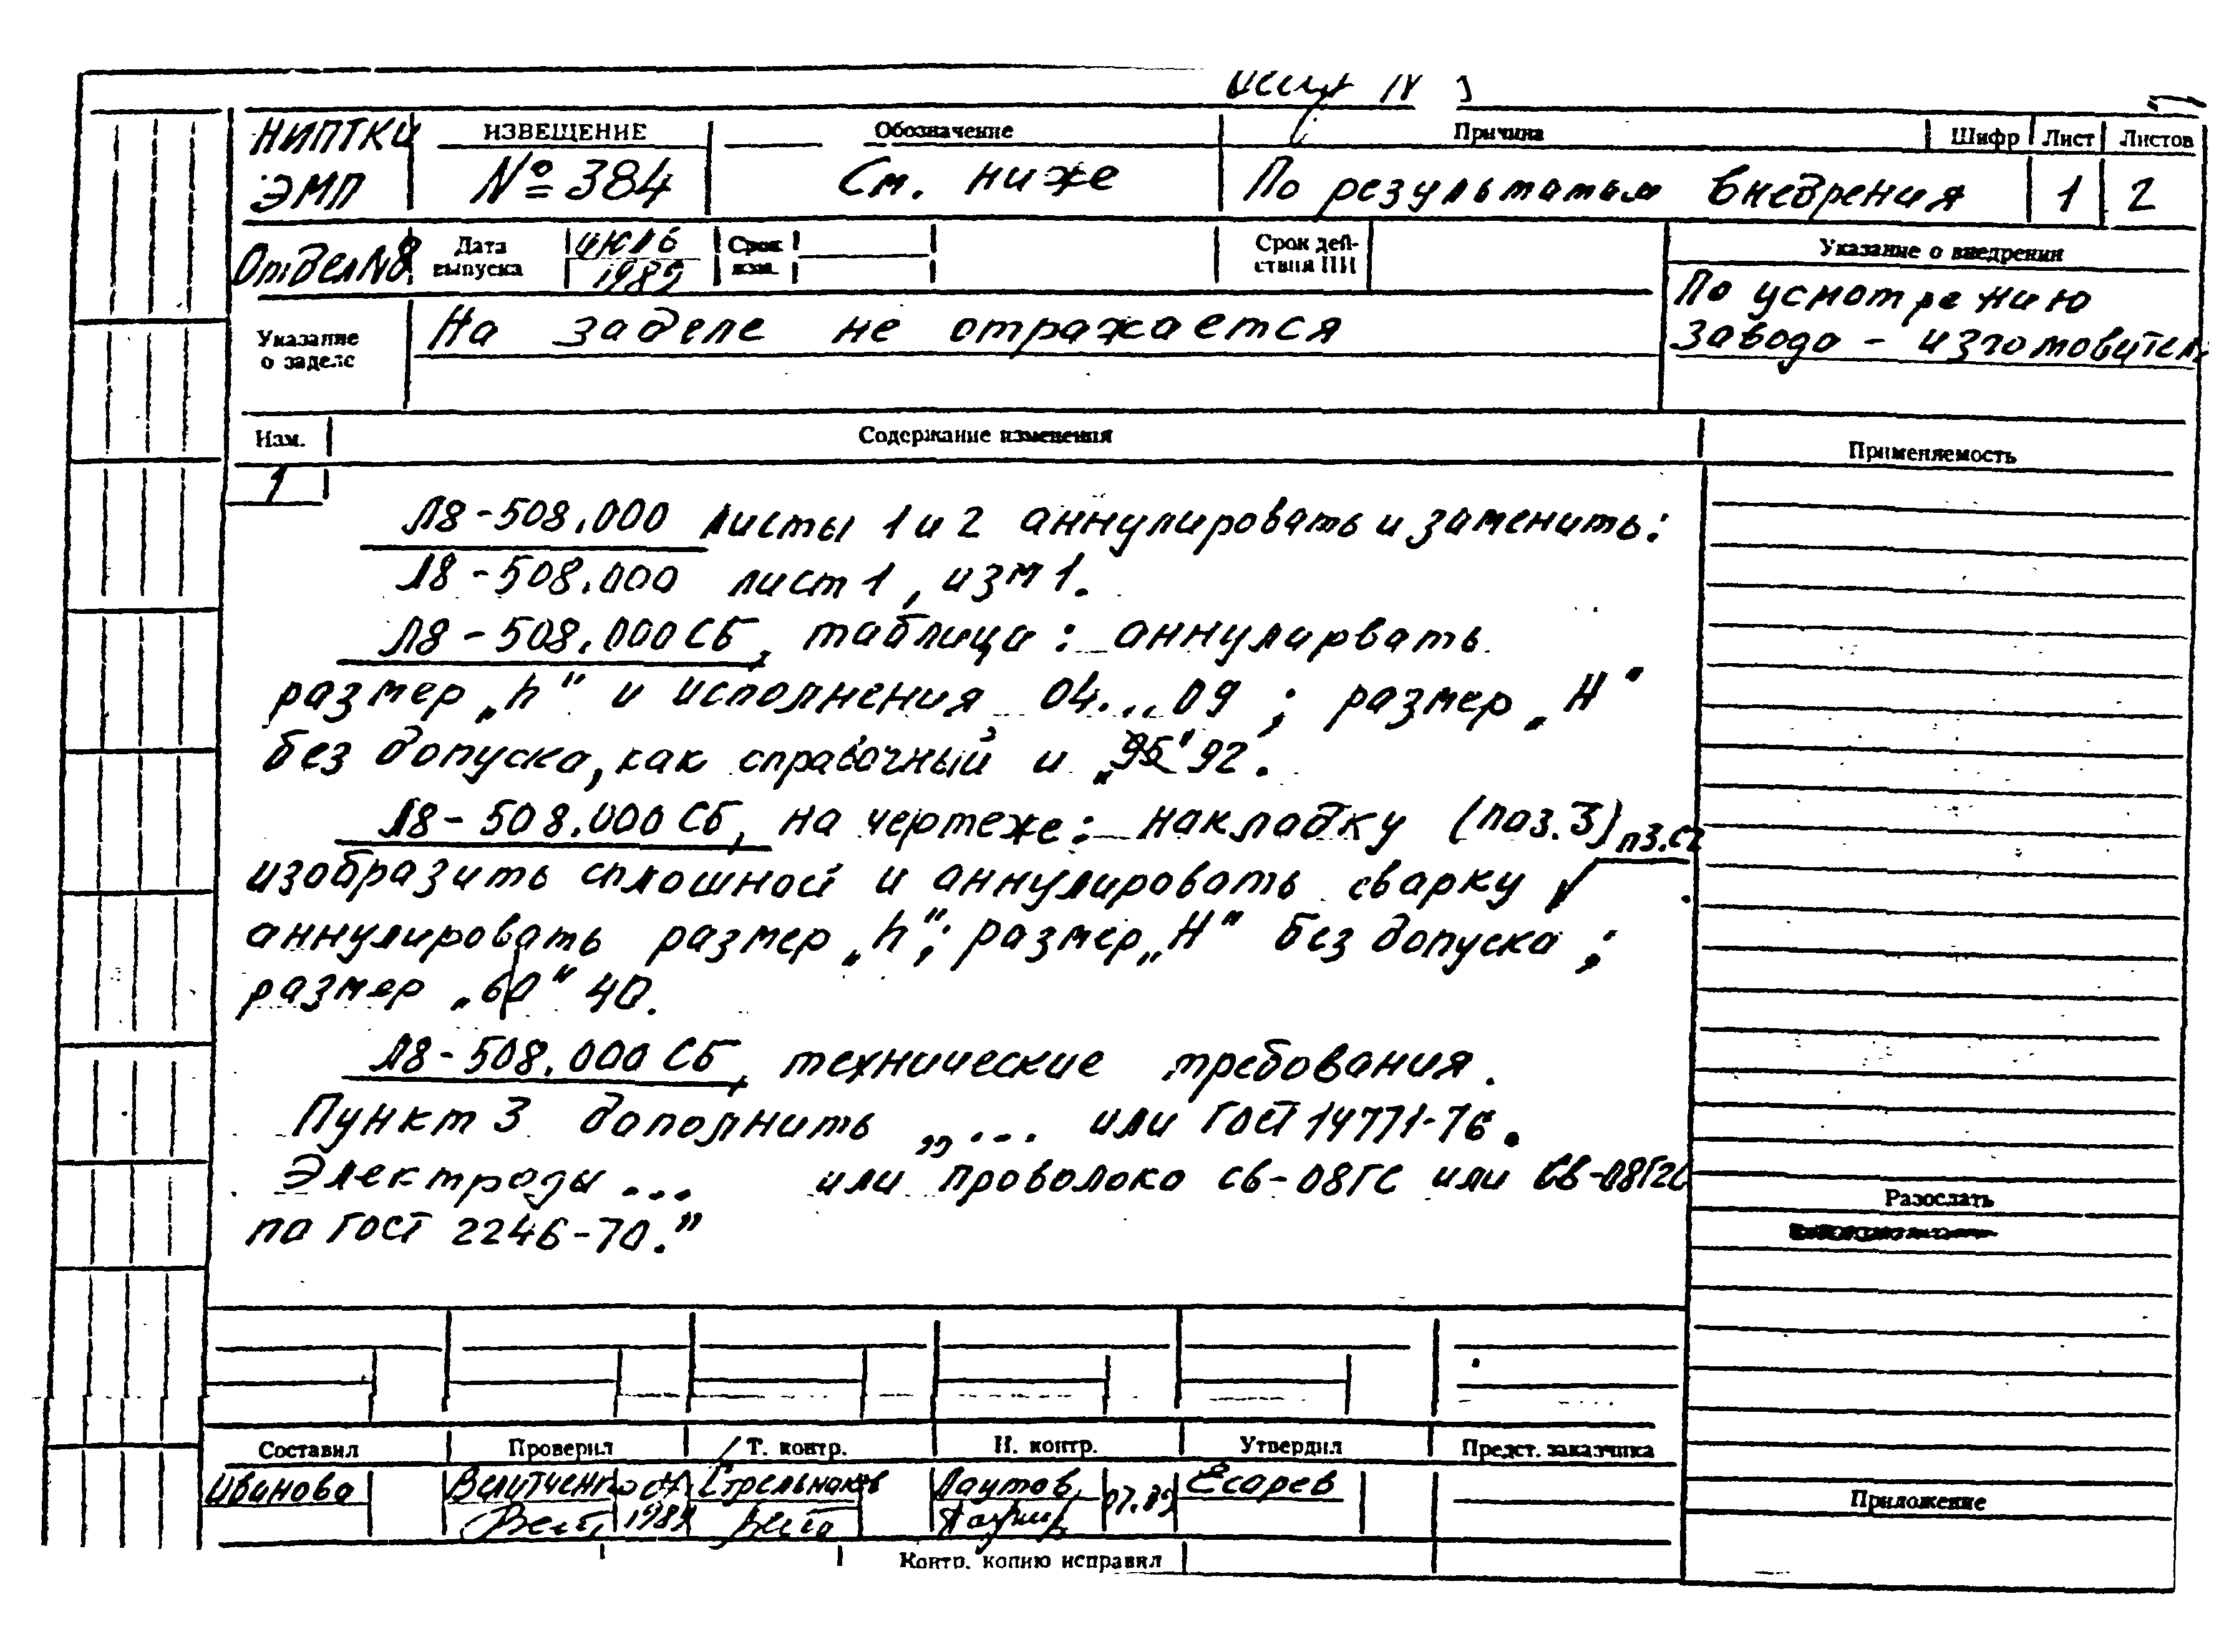 НИПТКИ ИЗВЕЩЕНИЕ Обозначение Причина Шифр Лист Листов
ЭМП №384 См. ниже По результатам внедрения 1 2
Отдел №8 Дата выпуска июль 1989 Срок изм. Срок дей-ствия ПИ Указание о внедрении
По усмотрению
завода - изготовителя
Указание о заделе На заделе не отражается
Изм. Содержание изменения Применяемость
1
Л8-508.000 листы 1 и 2 аннулировать и заменить:
Л8-508.000 лист 1, изм 1.
Л8-508.000 СБ, таблица: аннулирвать
размер „h" и исполнения 04...09; размер „H"
без допуска, как справочный и „95" 92.
Л8-508.000 СБ, на чертеже: накладку (поз. 3)
изобразить сплошной и аннулировать сварку
аннулировать размер „h"; размер „H" без допуска;
размер „60" 40.
Л8-508.000 СБ, технические требования.
Пункт 3 дополнить „... или ГОСТ 14771-76.
Электроды ... или проволока св-08ГС или св-08Г2С
по ГОСТ 2246-70."
Разослать
Составил Проверил Т. контр. Н. контр. Утвердил Предст. заказчика
Иванова Лаутов 07.89 Есарев
Приложение
Контр. копию исправил